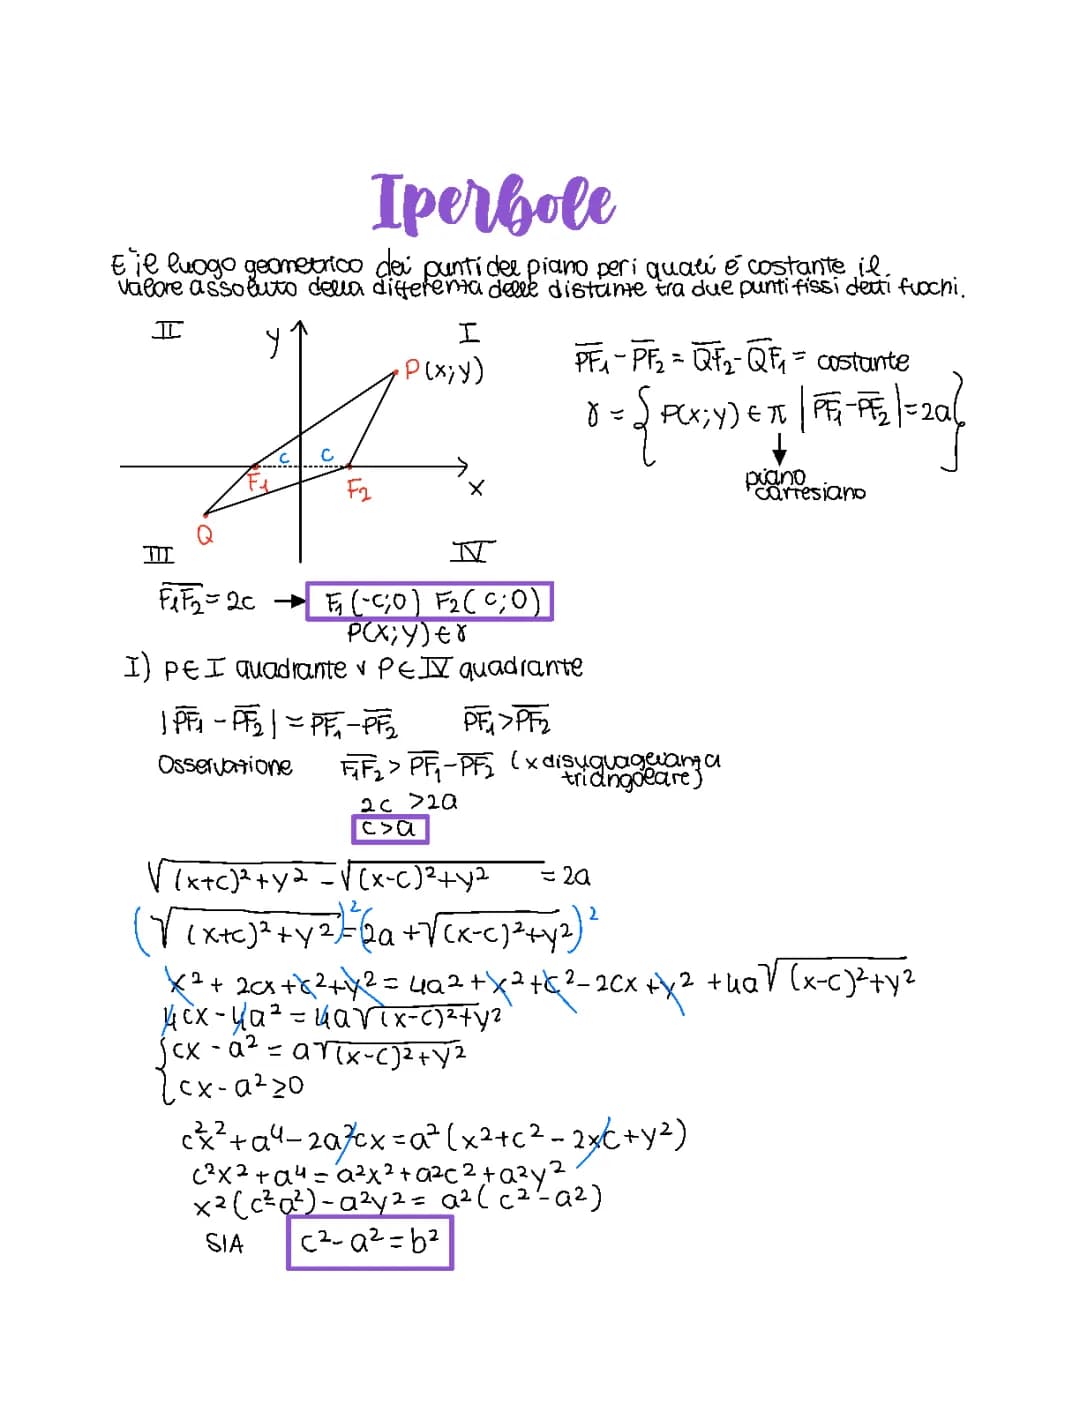 Iperbole
E' il luogo geometrico dei punti del piano per i quali è costante il
valore assoluto della differenza delle distanze tra due punti fissi detti fuochi.
II y I
P(x;y)
c c
F₁ F₂ x
Q
III IV
PF₁ - PF₂ = QF₂ - QF₁ = costante
γ = { P(x;y) ∈ π | |PF₁ - PF₂| = 2a }
piano
cartesiano
F₁F₂ = 2c → F₁(-c;0) F₂(c;0)
P(x;y) ∈ γ
I) P∈I quadrante ∨ P∈IV quadrante
|PF₁ - PF₂| = PF₁ - PF₂ PF₁ > PF₂
Osservazione F₁F₂ > PF₁ - PF₂ (x disuguaglianza
triangolare)
2c > 2a
c > a
√(x+c)²+y² - √(x-c)²+y² = 2a
(√(x+c)²+y²)² = (2a + √(x-c)²+y²)²
x² + 2cx + c² + y² = 4a² + x² + c² - 2cx + y² + 4a√(x-c)²+y²
4cx - 4a² = 4a√(x-c)²+y²
{ cx - a² = a√(x-c)²+y²
cx - a² ≥ 0
c²x² + a⁴ - 2a²cx = a²(x² + c² - 2xc + y²)
c²x² + a⁴ = a²x² + a²c² + a²y²
x²(c²-a²) - a²y² = a²(c² - a²)
SIA c² - a² = b²